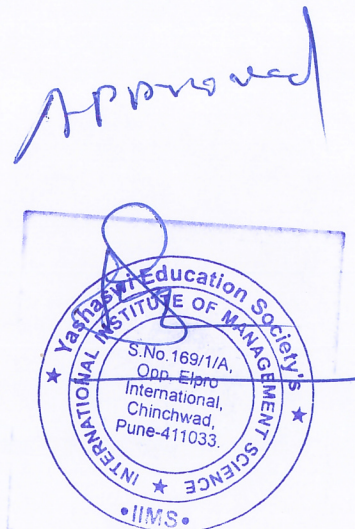 Approved
Yashaswi Education Society's
INTERNATIONAL INSTITUTE OF MANAGEMENT SCIENCE
S.No.169/1/A,
Opp. Elpro
International,
Chinchwad,
Pune-411033.
•IIMS•